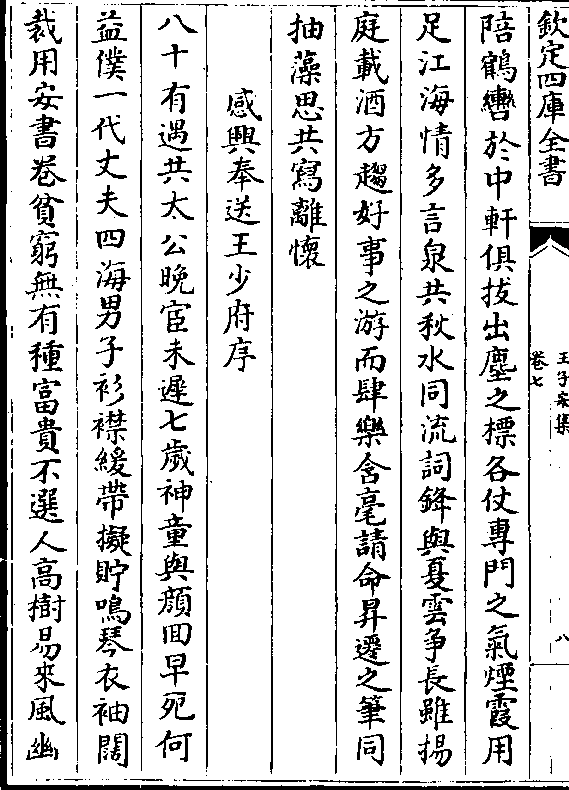 欽定四庫全書
王子安集
卷七
八
陪鶴轡於中軒俱拔出塵之標各仗專門之氣煙霞用
足江海情多言泉共秋水同流詞鋒與夏雲爭長雖揚
庭載酒方趨好事之游而肆樂含毫請命昇遷之筆同
抽藻思共寫離懷
感興奉送王少府序
八十有遇共太公晚宦未遲七歲神童與顔回早死何
益僕一代丈夫四海男子衫襟緩帶擬貯鳴琴衣袖闊
裁用安書卷貧窮無有種富貴不選人高樹易來風幽